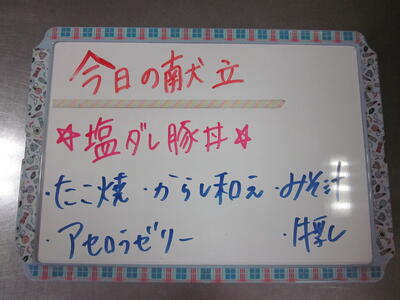 今日の献立
☆塩ダレ豚丼☆
・たこ焼 ・からし和え ・みそ汁
・アセロラゼリー ・牛乳